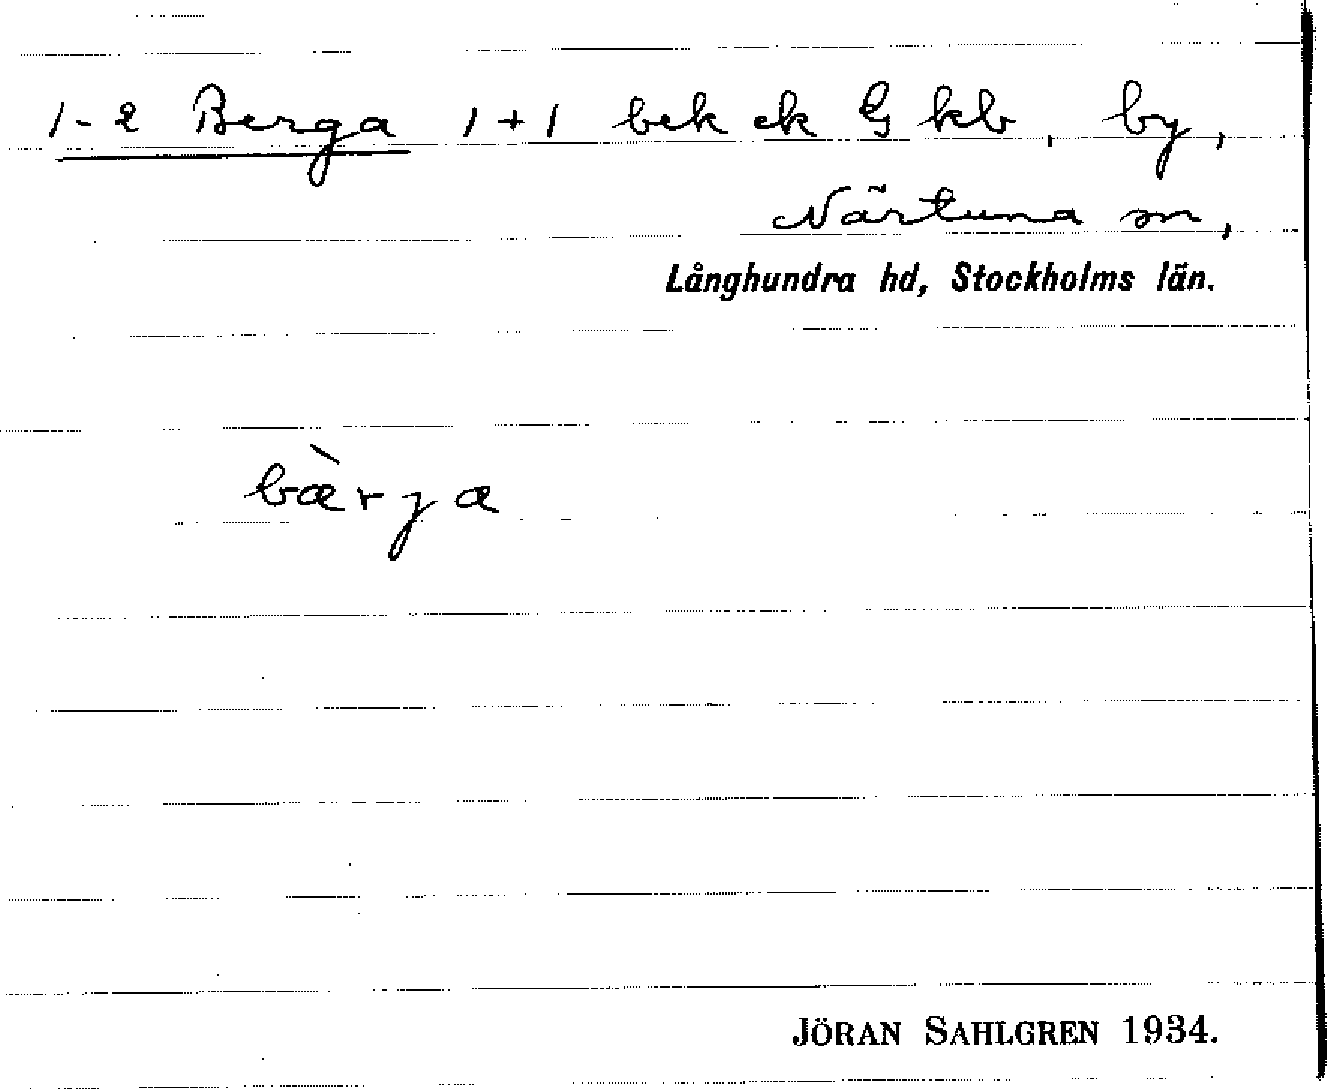 1-2 Berga 1+1 bek ek G kb, by,
Närtuna sn,
Långhundra hd, Stockholms län.
bær̀ja
JÖRAN SAHLGREN 1934.